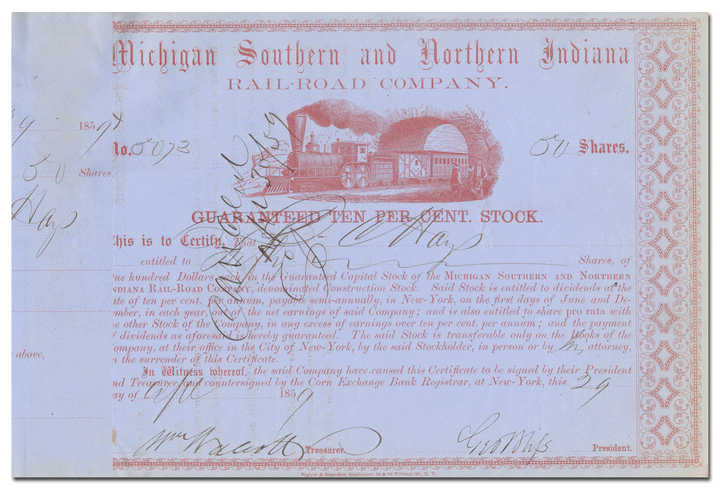 Michigan Southern and Northern Indiana
RAIL-ROAD COMPANY.
9 1859
No. 5072
50 Shares.
50 Shares
Hays
GUARANTEED TEN PER CENT. STOCK.
This is to Certify, That Hays
entitled to Shares, of
One hundred Dollars each in the Guaranteed Capital Stock of the MICHIGAN SOUTHERN AND NORTHERN
INDIANA RAIL-ROAD COMPANY, denominated Construction Stock. Said Stock is entitled to dividends at the
rate of ten per cent. per annum, payable semi-annually, in New-York, on the first days of June and De-
cember, in each year, out of the net earnings of said Company; and is also entitled to share pro rata with
the other Stock of the Company, in any excess of earnings over ten per cent. per annum; and the payment
of dividends as aforesaid is hereby guaranteed. The said Stock is transferable only on the Books of the
Company, at their office in the City of New-York, by the said Stockholder, in person or by attorney,
on the surrender of this Certificate.
above,
In Witness whereof, the said Company have caused this Certificate to be signed by their President
and Treasurer, and countersigned by the Corn Exchange Bank Registrar, at New-York, this 29
day of Apl 1859
Treasurer.
President.